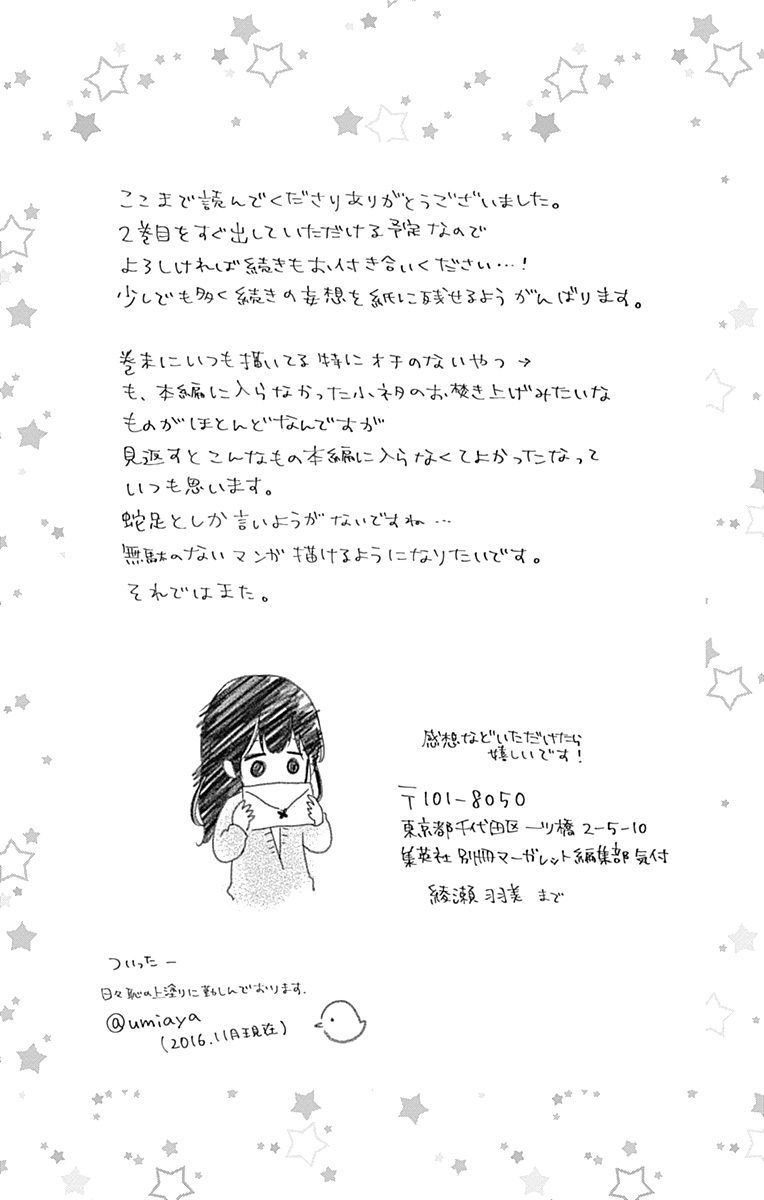 ここまで読んでくださりありがとうございました。
2巻目をすぐ出していただける予定なので
よろしければ続きもお付き合いください…!
少しでも多く続きの妄想を紙に残せるようがんばります。
巻末にいつも描いてる特にオチのないやつ→
も、本編に入らなかった小ネタのお焚き上げみたいな
ものがほとんどなんですが
見返すとこんなもの本編に入らなくてよかったなって
いつも思います。
蛇足としか言いようがないですね…
無駄のないマンガ描けるようになりたいです。
それではまた。
感想などいただけたら
嬉しいです!
〒101-8050
東京都千代田区一ツ橋2-5-10
集英社 別冊マーガレット編集部気付
綾瀬羽美 まで
ついったー
日々恥の上塗りに勤しんでおります.
@umiaya
(2016.11月現在)